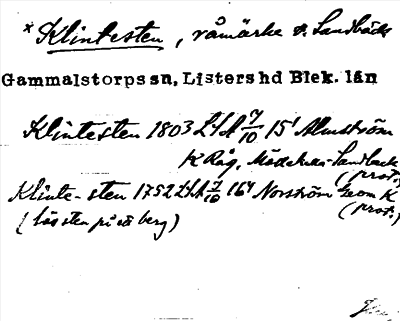 * Klintesten, råmärke v. Sandbäck
Gammalstorps sn, Listers hd Blek. län
Klintesten 1803 LSA 7/10 15¹ Almström
K Råg, Mödekras-Sandback
(prot.)
Klinte-sten 1752 LSA 7/10 16⁴ Norström Geom K
(lös sten på et berg) (prot.)